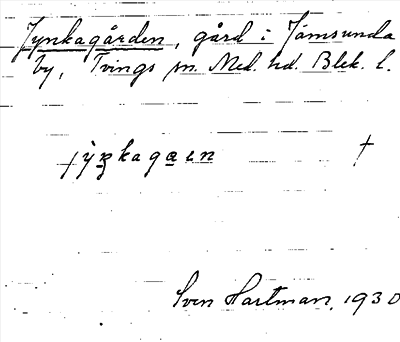 Jynkagården, gård i Jämsunda
by, Tvings sn. Med. hd. Blek. l.
jỳŋkagɑɛn †
Sven Hartman, 1930